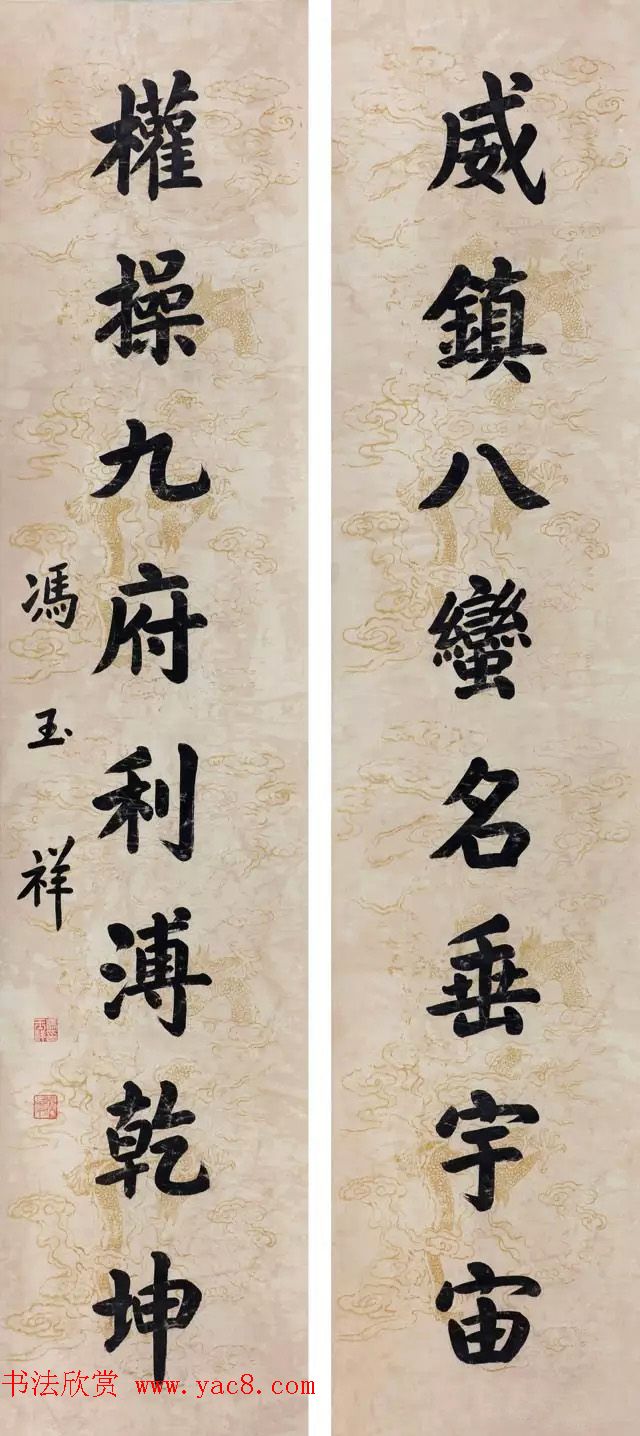 威鎮八蠻名垂宇宙
權操九府利溥乾坤
馮玉祥
书法欣赏 www.yac8.com